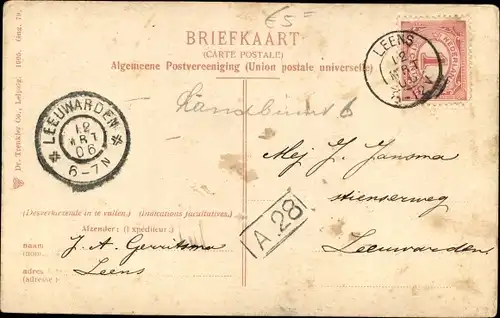 £5-
BRIEFKAART
(CARTE POSTALE)
Algemeene Postvereeniging (Union postale universelle)
LEENS
12
MRT
06
NEDERLAND
1
Landbuurt 6
LEEUWARDEN
12
MRT
06
6-7N
Mej J. Jansma
stienserweg
Leeuwarden
A 28
(Desverkiezende in te vullen.) (Indications facultatives.)
Afzender: (Expéditeur.)
naam J. A. Gerritsma
(nom.)
adres Leens
(adresse)
Dr. Trenkler Co., Leipzig. 1905. Gng. 79.